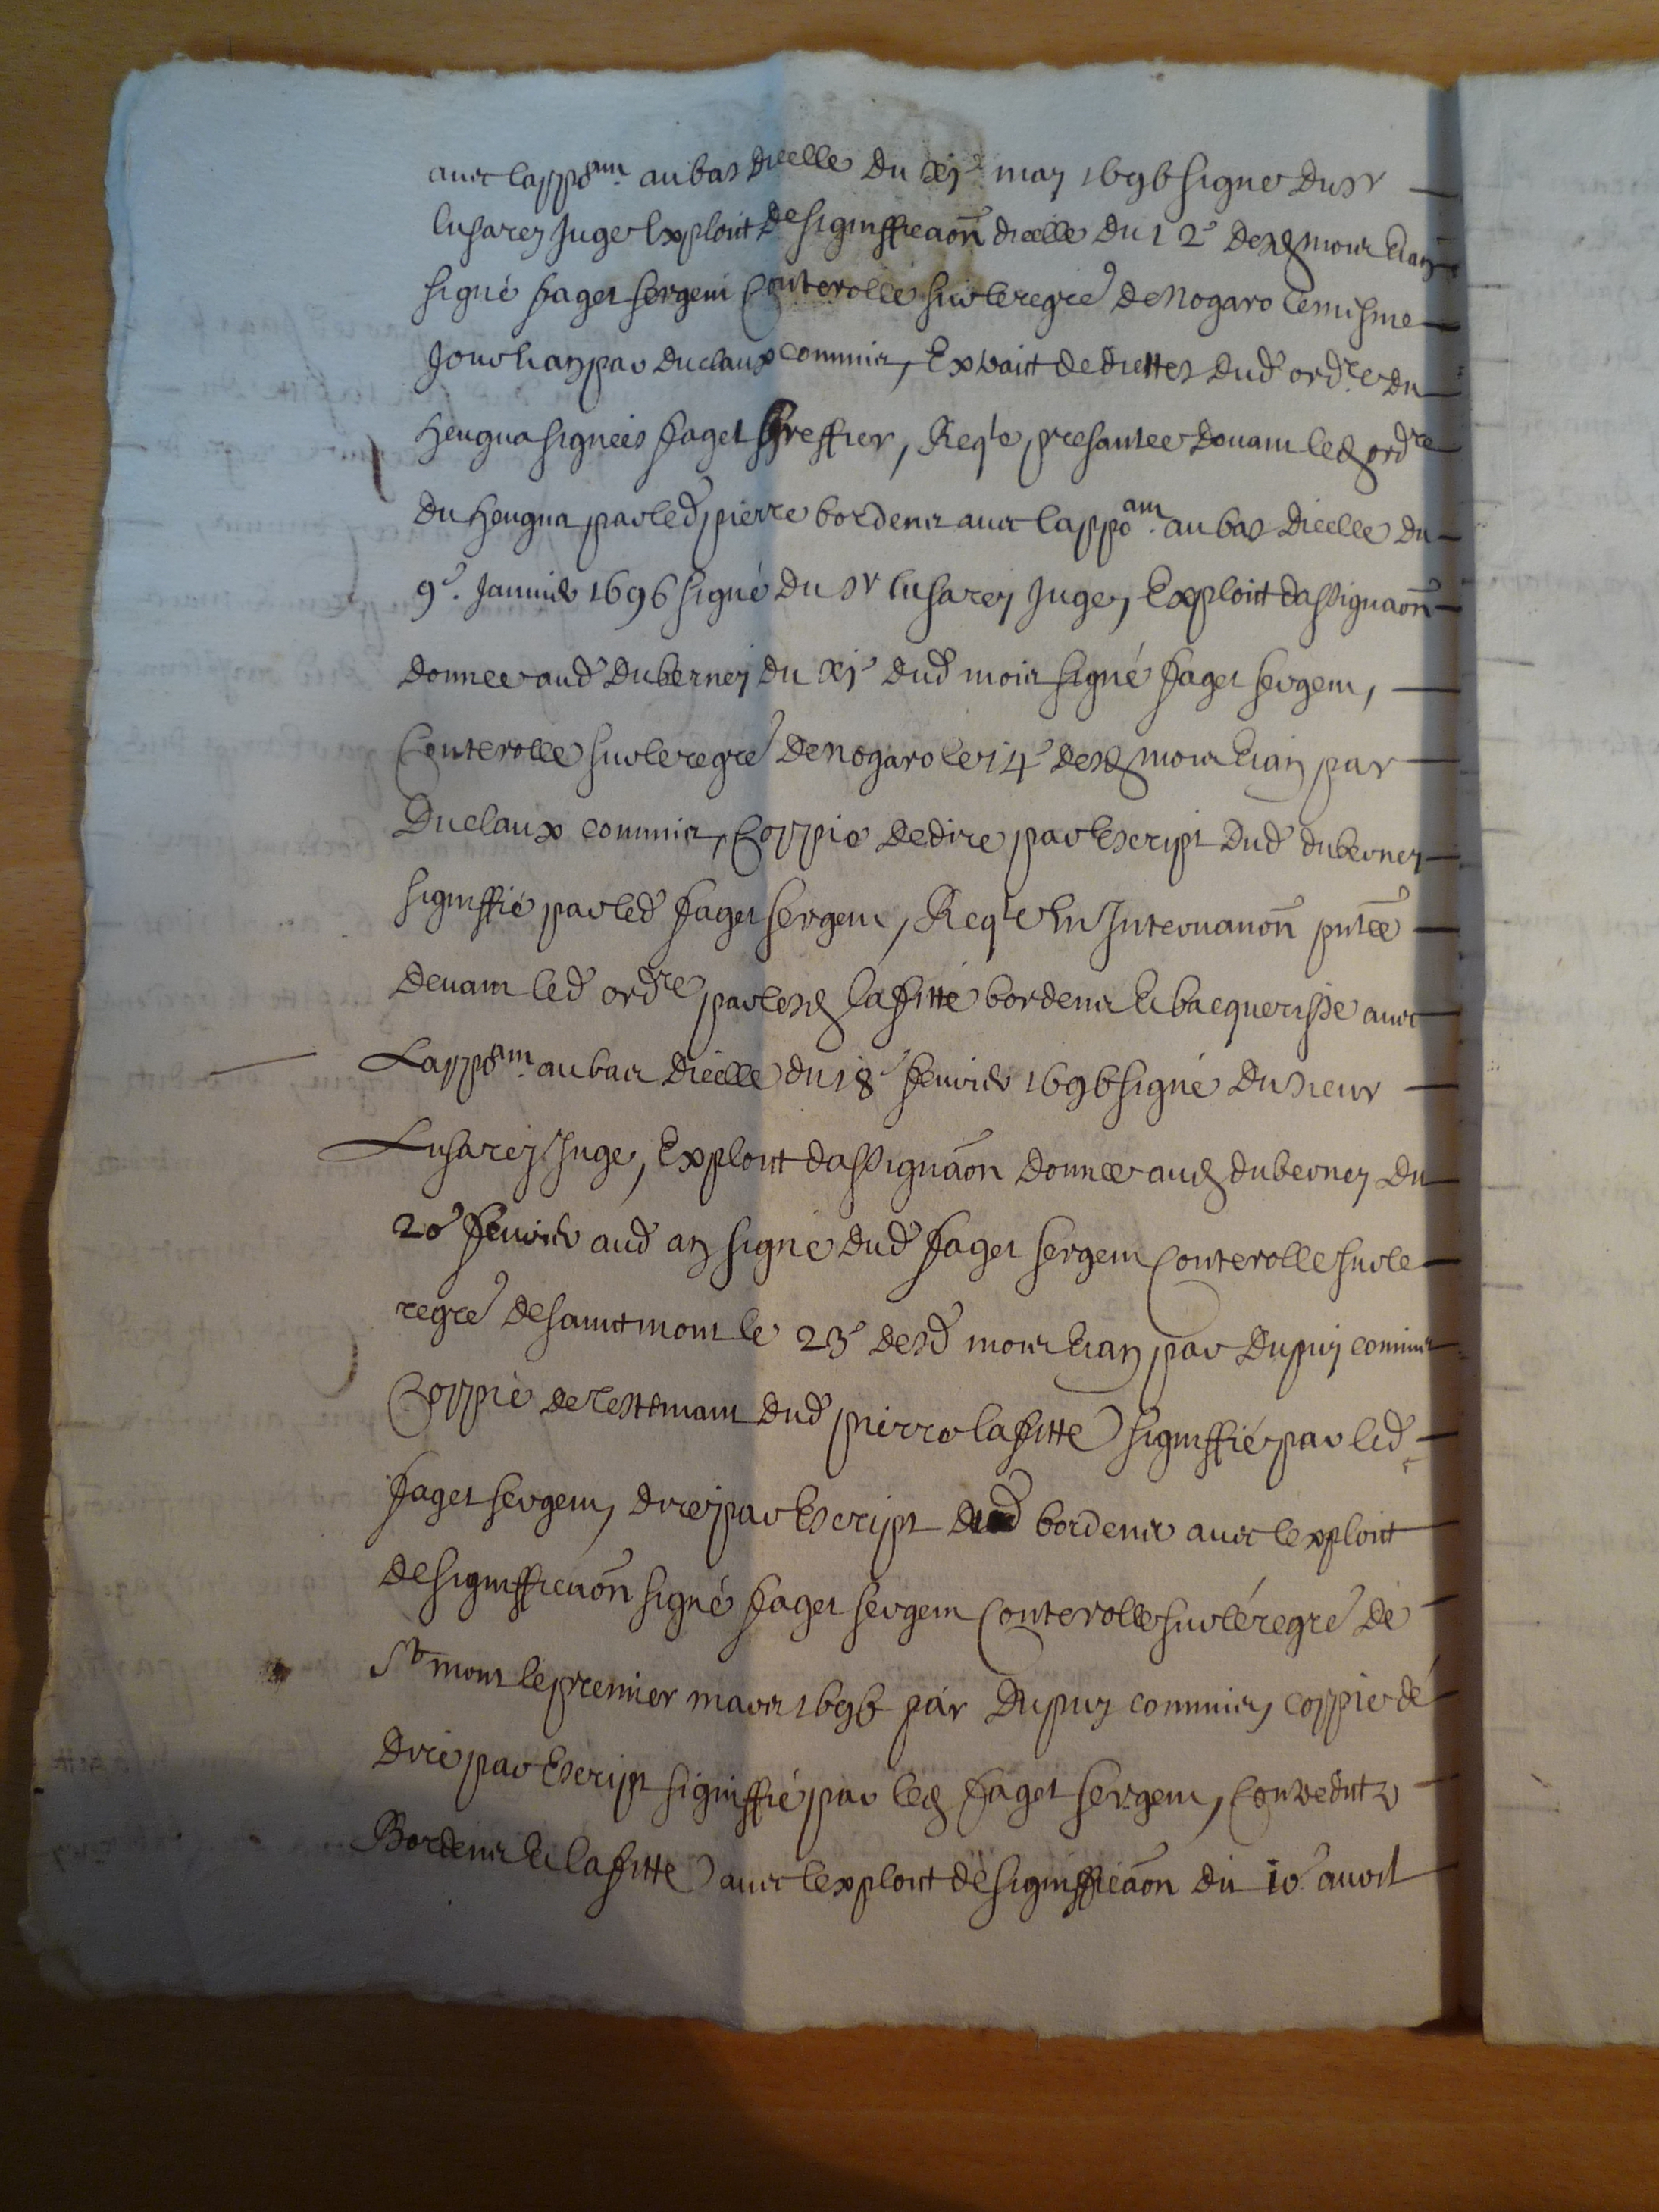 avec lappōam. au bas dicelle du xje may 1696 signé du sr
lusarey Juge Exploit de signifficaōn dicelle du 12e desd mois Et an
signé faget sergent Conterollé sur le regre de nogaro le mesme
Jour Et an par duclaux commis, Extrait de dittes dud ordre du
heugua signées faget greffier, Reqte presantee devant led ordre
du heugua par led pierre bordenis avec lappōam. au bas dicelle du
9e. Janvier 1696 signé du sr lusarey Juge, Exploit dassignaōn
donnee aud duberney du xje dud mois signé faget sergent,
Conterolle sur le regre de nogaro le 14e desd mois Et an par
Duclaux commis, Coppie de dire par Escript dud duberney
signiffié par led faget sergent, Reqte En Intervanōn pntée
devant led ordre par lesd lafitte bordenis Et bacquerisse avec
Lappōam. au bas dicelle du 18e fevrier 1696 signé du sieur
Lusarey Juge, Exploit dassignaōn donnee aud duberney du
20e fevrier aud an signé dud faget sergent Conterolle sur le
regre de sainct mont le 23e desd mois Et an par Dupuy commis
Coppie de testemant dud pierre lafitte signiffié par led
faget sergent, dire par Escript dud bordenis avec lexploit
de signifficaōn signé faget sergent Conterolle sur le regre de
St mont le premier mars 1696 par Dupuy commis, coppie de
dire par Escript signiffié par led faget sergent,
Bordenis Et lafitte avec lexploit de signifficaōn du 10e avril